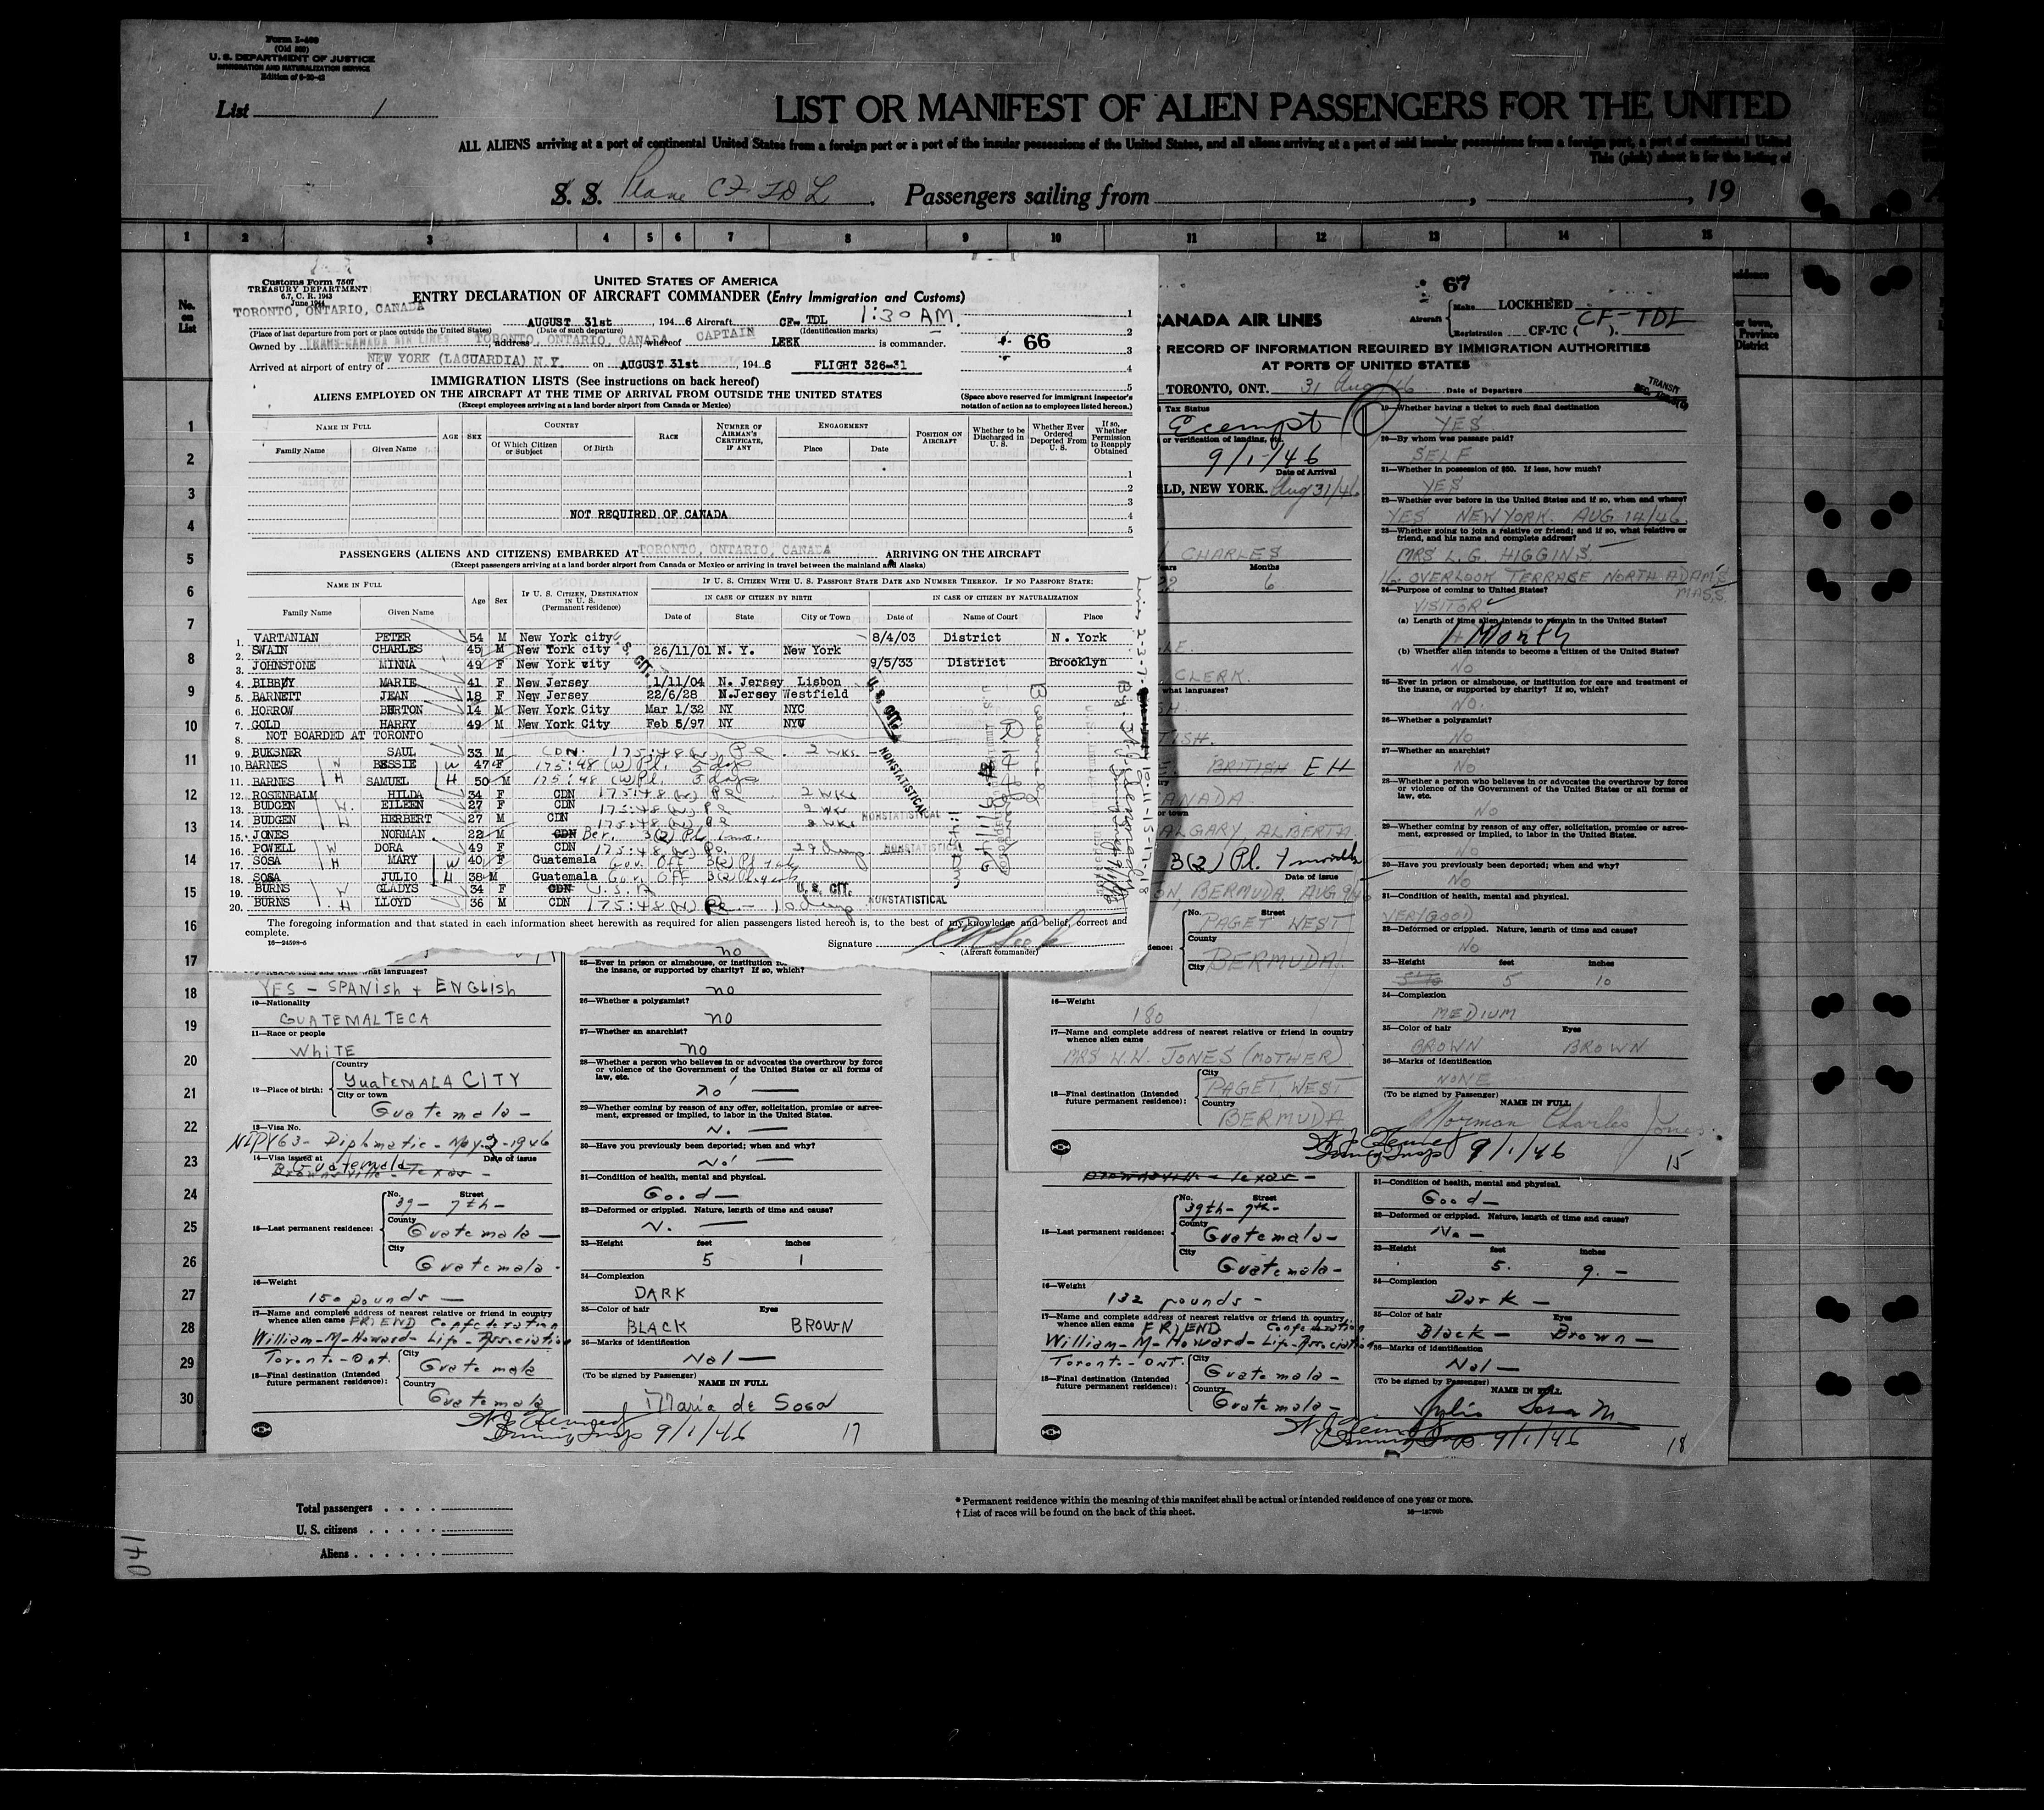 Form I-400
(Old 500)
U. S. DEPARTMENT OF JUSTICE
IMMIGRATION AND NATURALIZATION SERVICE
List 1
LIST OR MANIFEST OF ALIEN PASSENGERS FOR THE UNITED
ALL ALIENS arriving at a port of continental United States from a foreign port or a port of the insular possessions of the United States, and all aliens arriving at a port of said insular possessions from a foreign port, a port of continental United
This (pink) sheet is for the listing of
S. S. Plane CF TDL. Passengers sailing from , , 19
1 2 3 4 5 6 7 8 9 10 11 12 13 14 15
No. on List
1
2
3
4
5
6
7
8
9
10
11
12
13
14
15
16
17
18
19
20
21
22
23
24
25
26
27
28
29
30
Customs Form 7507
TREASURY DEPARTMENT
6.7, C. R. 1943
June 1944
UNITED STATES OF AMERICA
ENTRY DECLARATION OF AIRCRAFT COMMANDER (Entry Immigration and Customs)
TORONTO, ONTARIO, CANADA AUGUST 31st, 1946 Aircraft CF- TDL 1:30 AM.
(Place of last departure from port or place outside the United States) (Date of such departure) (Identification marks)
Owned by TRANS-CANADA AIR LINES, address TORONTO, ONTARIO, CANADA whereof CAPTAIN LEEK is commander.
66
Arrived at airport of entry of NEW YORK (LAGUARDIA) N.Y. on AUGUST 31st, 1946 FLIGHT 326-31
IMMIGRATION LISTS (See instructions on back hereof)
ALIENS EMPLOYED ON THE AIRCRAFT AT THE TIME OF ARRIVAL FROM OUTSIDE THE UNITED STATES
(Except employees arriving at a land border airport from Canada or Mexico)
(Space above reserved for immigrant inspector's notation of action as to employees listed hereon.)
NAME IN FULL AGE SEX COUNTRY RACE NUMBER OF AIRMAN'S CERTIFICATE, IF ANY ENGAGEMENT POSITION ON AIRCRAFT Whether to be Discharged in U. S. Whether Ever Ordered Deported From U. S. If so, Whether Permission to Reapply Obtained
Family Name Given Name Of Which Citizen or Subject Of Birth Place Date
NOT REQUIRED OF CANADA
PASSENGERS (ALIENS AND CITIZENS) EMBARKED AT TORONTO, ONTARIO, CANADA ARRIVING ON THE AIRCRAFT
(Except passengers arriving at a land border airport from Canada or Mexico or arriving in travel between the mainland and Alaska)
NAME IN FULL Age Sex IF U. S. CITIZEN, DESTINATION IN U. S. (Permanent residence) IF U. S. CITIZEN WITH U. S. PASSPORT STATE DATE AND NUMBER THEREOF. IF NO PASSPORT STATE:
IN CASE OF CITIZEN BY BIRTH IN CASE OF CITIZEN BY NATURALIZATION
Family Name Given Name Date of State City or Town Date of Name of Court Place
1. VARTANIAN PETER 54 M New York city 8/4/03 District N. York
2. SWAIN CHARLES 45 M New York city 26/11/01 N. Y. New York
3. JOHNSTONE MINNA 49 F New York city 9/5/33 District Brooklyn
4. BIBBY MARIE 41 F New Jersey 1/11/04 N. Jersey Lisbon
5. BARNETT JEAN 18 F New Jersey 22/6/28 N.Jersey Westfield
6. HORROW BURTON 14 M New York City Mar 1/32 NY NYC
7. GOLD HARRY 49 M New York City Feb 5/97 NY NYC
8. NOT BOARDED AT TORONTO
9. BUKSNER SAUL 33 M CDN. 175:48 (W) Pl. 2 wks.
10. BARNES W BESSIE W 47 F 175:48 (W) Pl. 5 days
11. BARNES H SAMUEL H 50 M 175:48 (W) Pl. 5 days
12. ROSENBALM HILDA 34 F CDN 175:48 (W) Pl 2 wks
13. BUDGEN W. EILEEN 27 F 175:48 (W) Pl 2 wks
14. BUDGEN H HERBERT 27 M CDN 175:48 (W) Pl 2 wks NONSTATISTICAL
15. JONES NORMAN 22 M CDN Ber. 3(2) Pl. 1 mo.
16. POWELL W DORA 49 F CDN 175:48 (W) Pl. 29 days NONSTATISTICAL
17. SOSA H MARY W 40 F Guatemala Gov. Off 3(2) Pl
18. SOSA JULIO H 38 M Guatemala Gov. Off 3(2) Pl
19. BURNS W GLADYS 34 F CDN U.S.A U. S. CIT.
20. BURNS H LLOYD 36 M CDN 175:48 (W) Pl - 10 days NONSTATISTICAL
U. S. CIT.
NONSTATISTICAL
The foregoing information and that stated in each information sheet herewith as required for alien passengers listed hereon is, to the best of my knowledge and belief, correct and complete.
16-24598-6
Signature
(Aircraft commander)
67
CANADA AIR LINES
Aircraft Make LOCKHEED
Registration CF-TC ( CF-TDL ).
RECORD OF INFORMATION REQUIRED BY IMMIGRATION AUTHORITIES
AT PORTS OF UNITED STATES
TORONTO, ONT. 31 Aug 46 Date of Departure
TRANSIT
Tax Status
Exempt
or verification of landing, etc.
9/1/46
Date of Arrival
LD, NEW YORK. Aug 31/46
CHARLES
Years Months
22 6
CLERK.
what languages?
BRITISH EH
CANADA
CALGARY, ALBERTA.
3(2) Pl. 1 month
Date of issue
BERMUDA AUG 9/46
No. Street
PAGET WEST
County
City
BERMUDA.
16—Weight
180
17—Name and complete address of nearest relative or friend in country whence alien came
MRS W.W. JONES (MOTHER)
18—Final destination (Intended future permanent residence):
City
PAGET WEST
Country
BERMUDA
19—Whether having a ticket to such final destination
YES
20—By whom was passage paid?
SELF
21—Whether in possession of $50. If less, how much?
YES
22—Whether ever before in the United States and if so, when and where?
YES NEW YORK. AUG 14/46
23—Whether going to join a relative or friend; and if so, what relative or friend, and his name and complete address?
MRS L.G. HIGGINS
16 OVERLOOK TERRACE NORTH ADAMS MASS
24—Purpose of coming to United States?
VISITOR
(a) Length of time alien intends to remain in the United States?
1 Month
(b) Whether alien intends to become a citizen of the United States?
NO
25—Ever in prison or almshouse, or institution for care and treatment of the insane, or supported by charity? If so, which?
NO.
26—Whether a polygamist?
NO
27—Whether an anarchist?
NO
28—Whether a person who believes in or advocates the overthrow by force or violence of the Government of the United States or all forms of law, etc.
NO
29—Whether coming by reason of any offer, solicitation, promise or agreement, expressed or implied, to labor in the United States.
NO
30—Have you previously been deported; when and why?
NO
31—Condition of health, mental and physical.
VERY GOOD
32—Deformed or crippled. Nature, length of time and cause?
NO
33—Height feet inches
5 10
34—Complexion
MEDIUM
35—Color of hair Eyes
BROWN BROWN
36—Marks of identification
NONE
(To be signed by Passenger) NAME IN FULL
Norman Charles Jones
9/1/46 15
what languages?
YES - SPANISH + ENGLISH
10—Nationality
GUATEMALTECA
11—Race or people
WHITE
12—Place of birth:
Country
GUATEMALA CITY
City or town
Guatemala -
13—Visa No.
Diplomatic - May-2-1946
14—Visa issued at Date of issue
Guatemala
Brownsville - Texas -
15—Last permanent residence:
No. Street
39 - 7th -
County
Guatemala -
City
Guatemala -
16—Weight
150 pounds -
17—Name and complete address of nearest relative or friend in country whence alien came FRIEND Confederation
William-M-Howard- Life-Association
Toronto-Ont.
18—Final destination (Intended future permanent residence):
City
Guatemala
Country
Guatemala
no
25—Ever in prison or almshouse, or institution
the insane, or supported by charity? If so, which?
no
26—Whether a polygamist?
no
27—Whether an anarchist?
no
28—Whether a person who believes in or advocates the overthrow by force or violence of the Government of the United States or all forms of law, etc.
no
29—Whether coming by reason of any offer, solicitation, promise or agreement, expressed or implied, to labor in the United States.
No -
30—Have you previously been deported; when and why?
No -
31—Condition of health, mental and physical.
Good -
32—Deformed or crippled. Nature, length of time and cause?
No -
33—Height feet inches
5 1
34—Complexion
DARK
35—Color of hair Eyes
BLACK BROWN
36—Marks of identification
Nal -
(To be signed by Passenger)
NAME IN FULL
María de Sosa
9/1/46 17
Brownsville - Texas -
15—Last permanent residence:
No. Street
39th - 7th -
County
Guatemala -
City
Guatemala -
16—Weight
132 pounds -
17—Name and complete address of nearest relative or friend in country whence alien came FRIEND Confederation
William-M-Howard-Life-Association
Toronto-Ont.
18—Final destination (Intended future permanent residence):
City
Guatemala -
Country
Guatemala -
31—Condition of health, mental and physical.
Good -
32—Deformed or crippled. Nature, length of time and cause?
No -
33—Height feet inches
5. 9. -
34—Complexion
Dark -
35—Color of hair Eyes
Black - Brown -
36—Marks of identification
Nal -
(To be signed by Passenger)
NAME IN FULL
Julio Sosa M
9/1/46 18
Total passengers
U. S. citizens
Aliens
* Permanent residence within the meaning of this manifest shall be actual or intended residence of one year or more.
† List of races will be found on the back of this sheet.
140